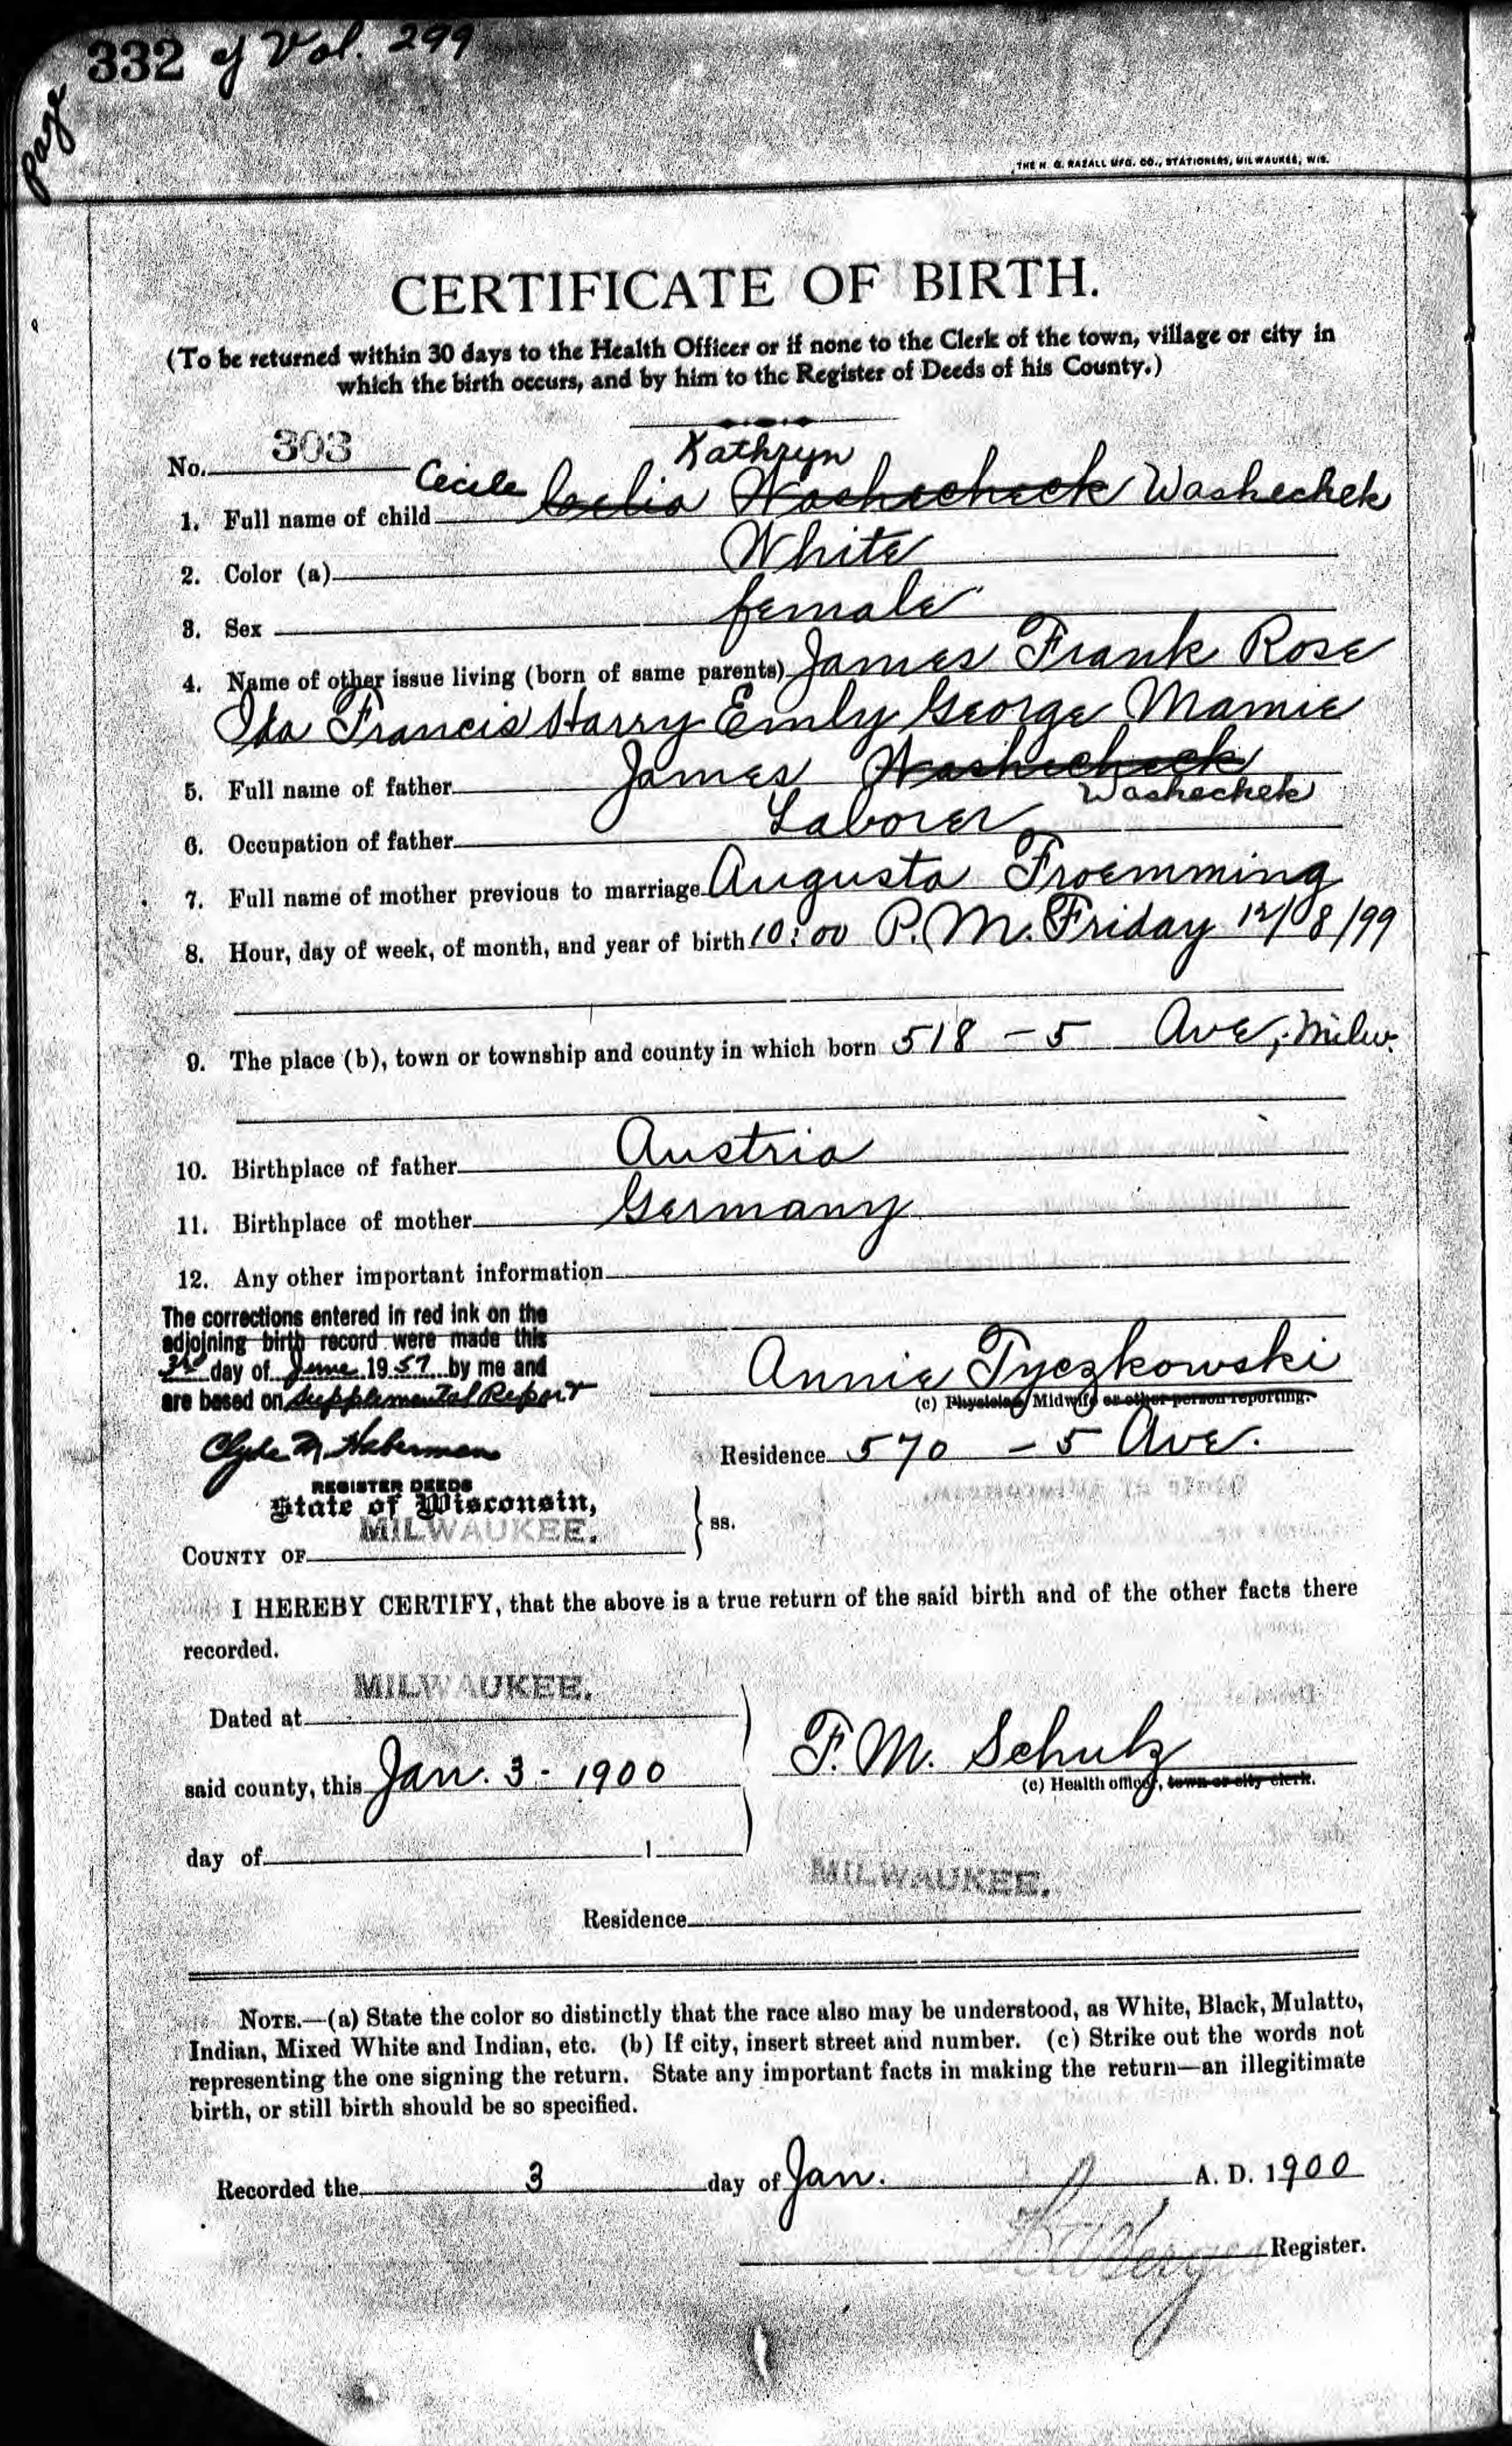 page 332 of Vol. 299
THE H. G. RAZALL MFG. CO., STATIONERS, MILWAUKEE, WIS.
CERTIFICATE OF BIRTH.
(To be returned within 30 days to the Health Officer or if none to the Clerk of the town, village or city in
which the birth occurs, and by him to the Register of Deeds of his County.)
No. 303
Kathryn
1. Full name of child Cecile Celia Washecheck Washechek
2. Color (a) White
3. Sex female
4. Name of other issue living (born of same parents) James Frank Rose
Ida Francis Harry Emily George Mamie
5. Full name of father James Washecheck
Washechek
6. Occupation of father Laborer
7. Full name of mother previous to marriage Augusta Froemming
8. Hour, day of week, of month, and year of birth 10:00 P.M. Friday 12/08/99
9. The place (b), town or township and county in which born 518 - 5 Ave, Milw.
10. Birthplace of father Austria
11. Birthplace of mother Germany
12. Any other important information
The corrections entered in red ink on the
adjoining birth record were made this
3rd day of June 1957 by me and
are based on Supplemental Report
Clyde M Haberman
REGISTER DEEDS
Annie Tyczkowski
(c) Physician, Midwife or other person reporting.
Residence 570 - 5 Ave.
State of Wisconsin,
COUNTY OF MILWAUKEE. ss.
I HEREBY CERTIFY, that the above is a true return of the said birth and of the other facts there
recorded.
Dated at MILWAUKEE.
said county, this Jan. 3 - 1900
day of 1
F. M. Schulz
(c) Health officer, town or city clerk.
Residence MILWAUKEE.
NOTE.—(a) State the color so distinctly that the race also may be understood, as White, Black, Mulatto,
Indian, Mixed White and Indian, etc. (b) If city, insert street and number. (c) Strike out the words not
representing the one signing the return. State any important facts in making the return—an illegitimate
birth, or still birth should be so specified.
Recorded the 3 day of Jan. A. D. 1900
Register.